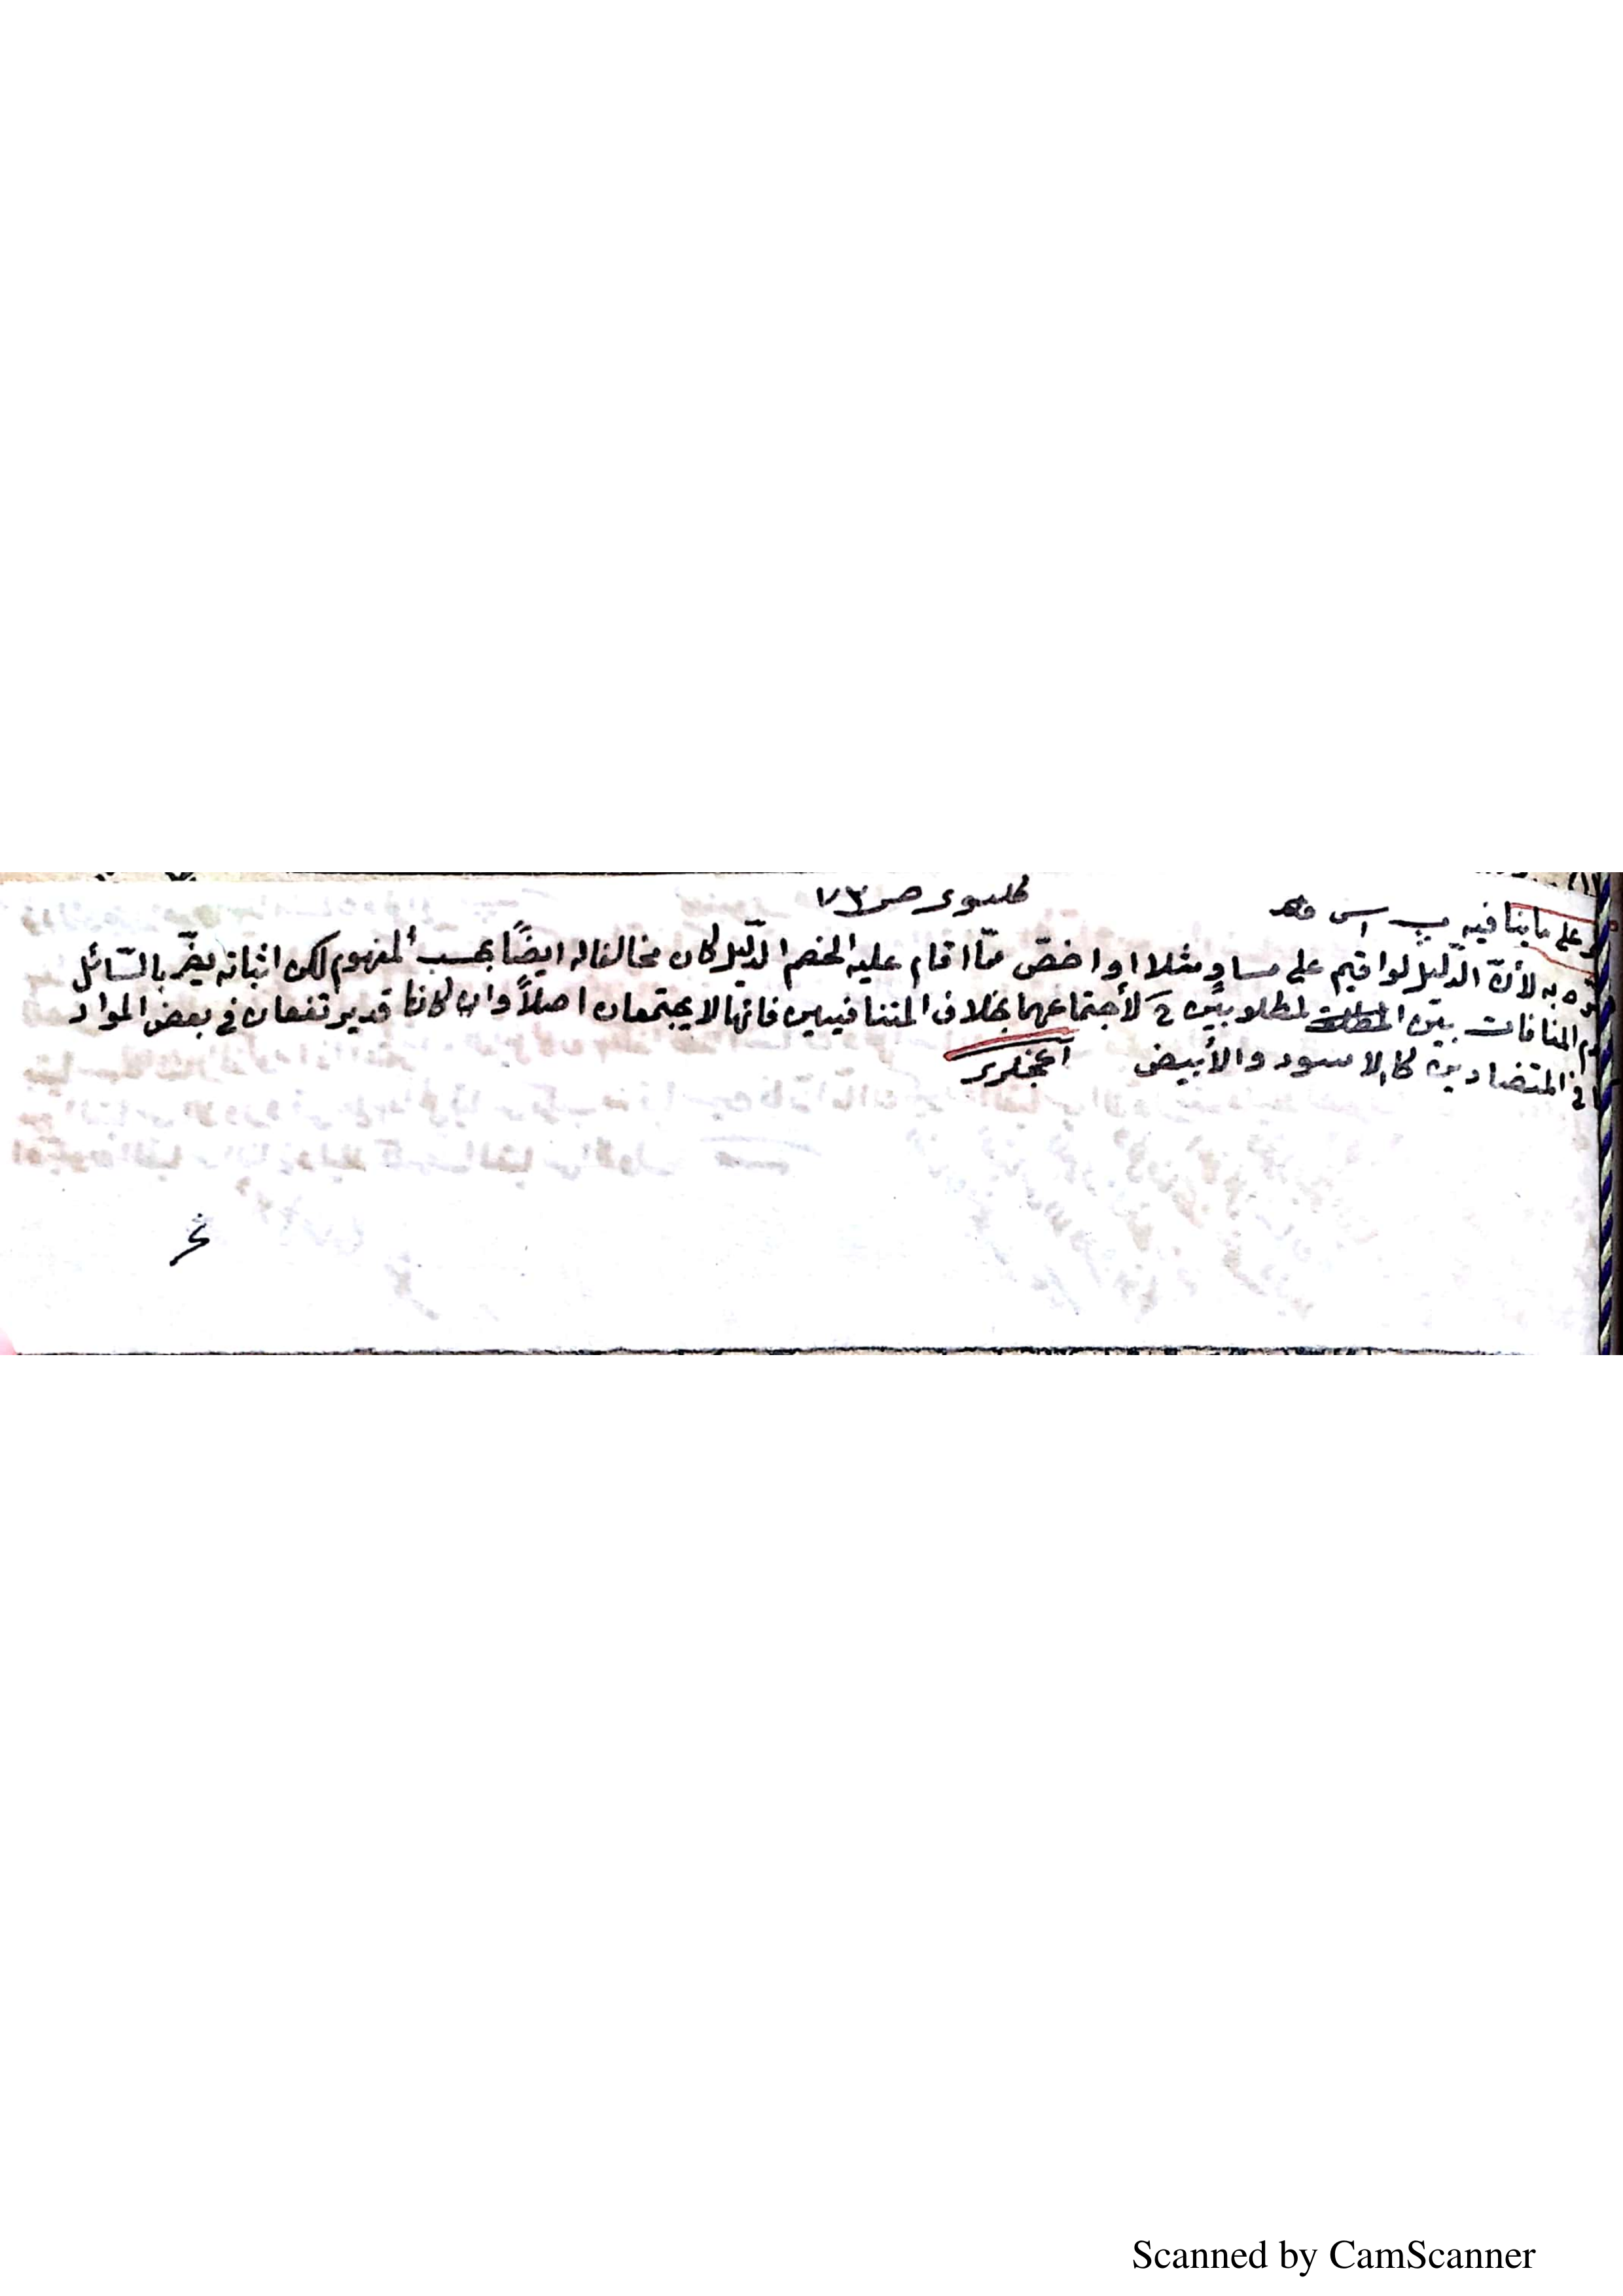 كلنبوى ص ٧٦
على ما ينافيه
به لأنّ الدّليل لو اقيم على مساوٍ مثلا او اخصّ ممّا اقام عليه الخصم الدّليل كان مخالفا له ايضًا بحسب المفهوم لكن اثباته يضرّ بالسّائل
المنافات بين المطلوبين ح لأجتماعهما بخلاف المتنافيين فانّهما لا يجتمعان اصلاً وان كانا قد يرتفعان في بعض المواد
في المتضادين كالاسود والأبيض
Scanned by CamScanner